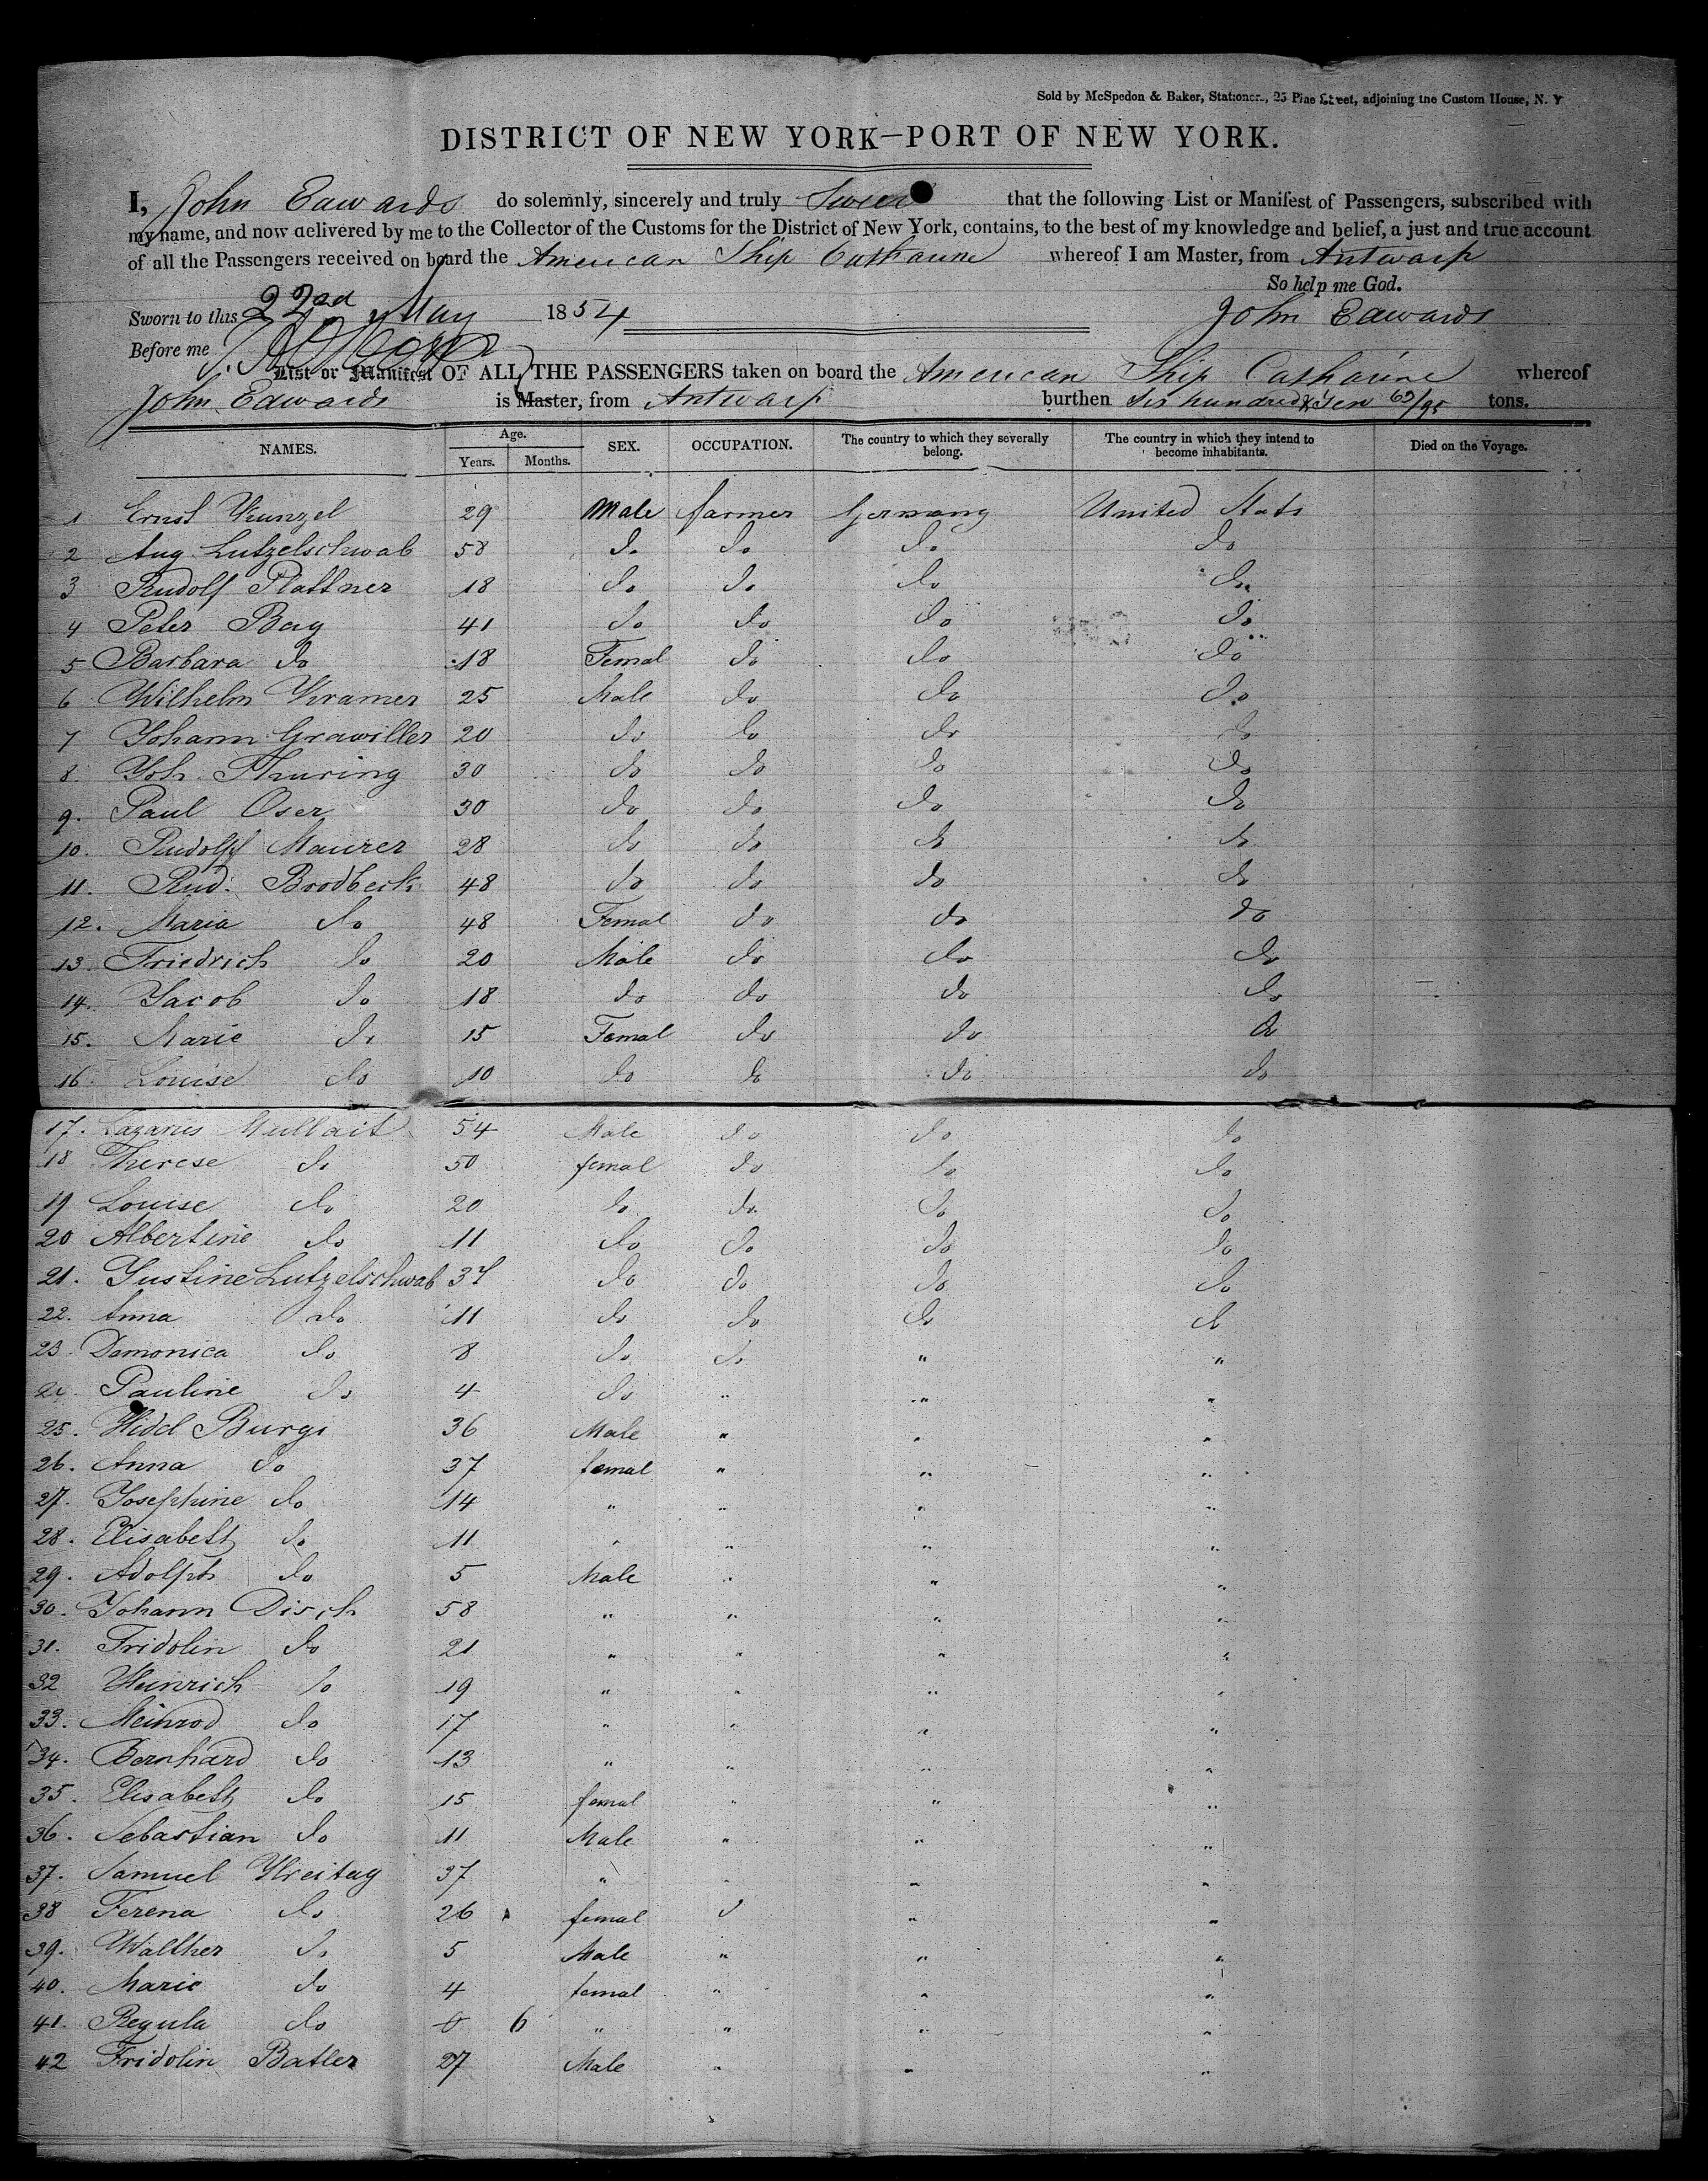 Sold by McSpedon & Baker, Stationers, 25 Pine Street, adjoining the Custom House, N. Y
DISTRICT OF NEW YORK—PORT OF NEW YORK.
I, John Edwards do solemnly, sincerely and truly Swear that the following List or Manifest of Passengers, subscribed with
my name, and now delivered by me to the Collector of the Customs for the District of New York, contains, to the best of my knowledge and belief, a just and true account
of all the Passengers received on board the American Ship Catharine whereof I am Master, from Antwarp
So help me God.
Sworn to this 22nd May 1854 John Edwards
Before me
List or Manifest OF ALL THE PASSENGERS taken on board the American Ship Catharine whereof
John Edwards is Master, from Antwarp burthen Six hundred & Ten 65/95 tons.
NAMES. Age. Years. Months. SEX. OCCUPATION. The country to which they severally belong. The country in which they intend to become inhabitants. Died on the Voyage.
1 Ernst Kunzel 29 Male farmer Germany United Stats
2 Aug. Lutzelschwab 58 do do do do
3 Rudolf Plattner 18 do do do do
4 Peter Bay 41 do do do do
5 Barbara do 18 Femal do do do
6 Wilhelm Kramer 25 Male do do do
7 Johann Grawiller 20 do do do do
8 Joh. Thuring 30 do do do do
9. Paul Oser 30 do do do do
10. Rudolph Maurer 28 do do do do
11. Rud. Brodbeck 48 do do do do
12. Maria do 48 Femal do do do
13. Friedrich do 20 Male do do do
14. Jacob do 18 do do do do
15. Marie do 15 Femal do do do
16. Louise do 10 do do do do
17. Lazarus Mullait 54 Male do do do
18 Therese do 50 femal do do do
19 Louise do 20 do do do do
20 Albertine do 11 do do do do
21. Justine Lutzelschwab 37 do do do do
22. Anna do 11 do do do do
23. Domonica do 8 do do " "
24. Pauline do 4 do " " "
25. Burgi 36 Male " " "
26. Anna do 37 femal " " "
27. Josephine do 14 " " " "
28. Elisabeth do 11 " " " "
29. Adolph do 5 Male " " "
30. Johann Disch 58 " " " "
31. Fridolin do 21 " " " "
32 Heinrich do 19 " " " "
33. Meinrod do 17 " " " "
34. Bernhard do 13 " " " "
35. Elisabeth do 15 femal " " "
36. Sebastian do 11 Male " " "
37. Samuel 37 " " " "
38 Ferena do 26 femal " " "
39. Walther do 5 Male " " "
40. Marie do 4 femal " " "
41. Regula do 0 6 " " " "
42 Fridolin Batler 27 Male " " "